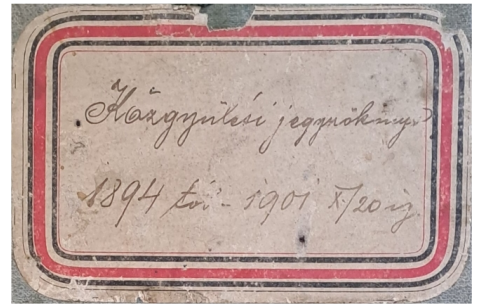 Közgyülési jegyzőkönyv
1894 től - 1901 X/20 ig.